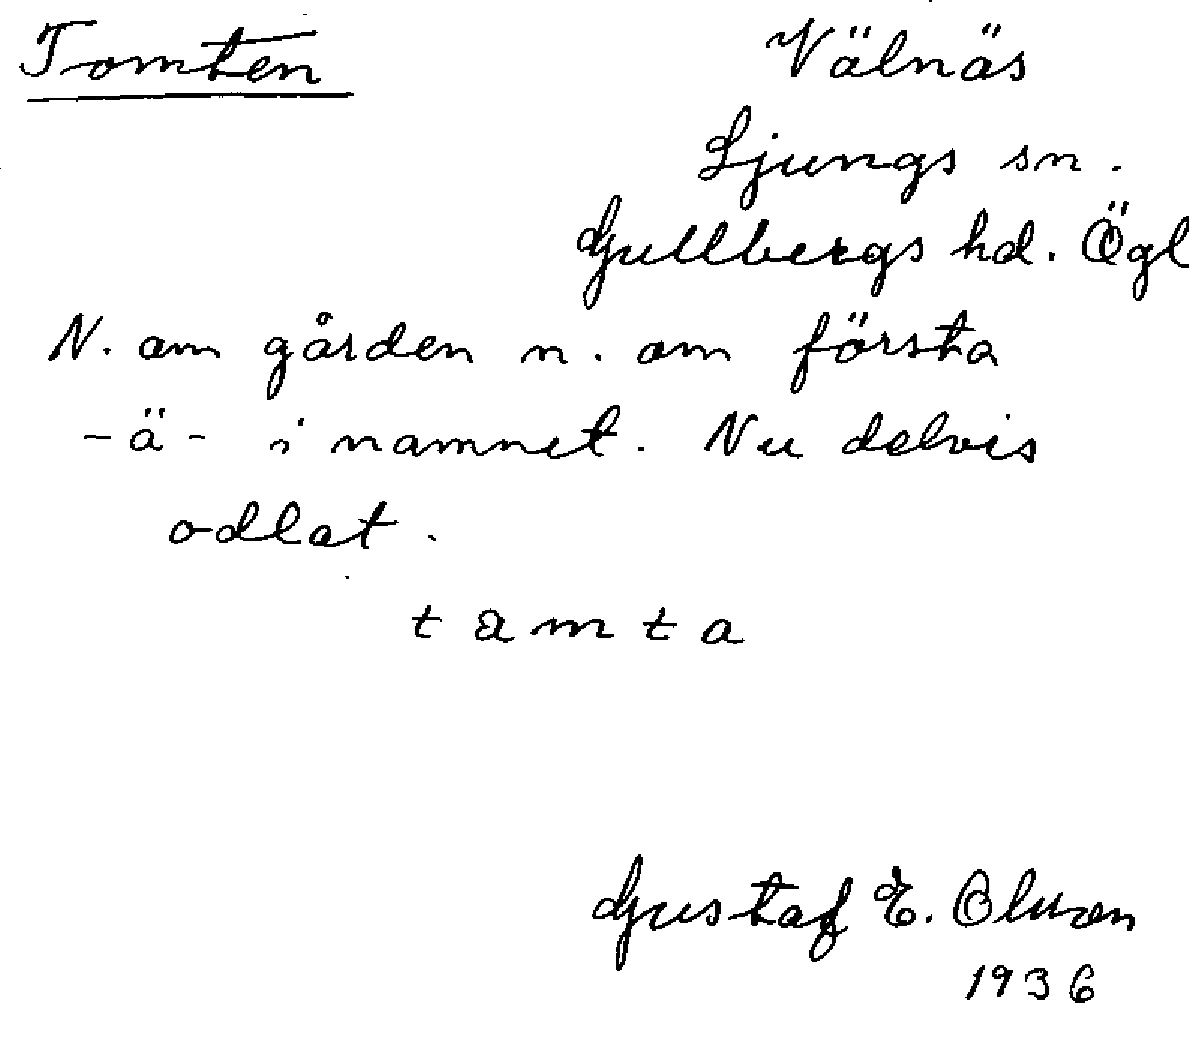 Tomten
Välnäs
Ljungs sn.
Gullbergs hd. Ögl
N. om gården n. om första
-ä- i namnet. Nu delvis
odlat.
tamta
Gustaf E. Olsson
1936